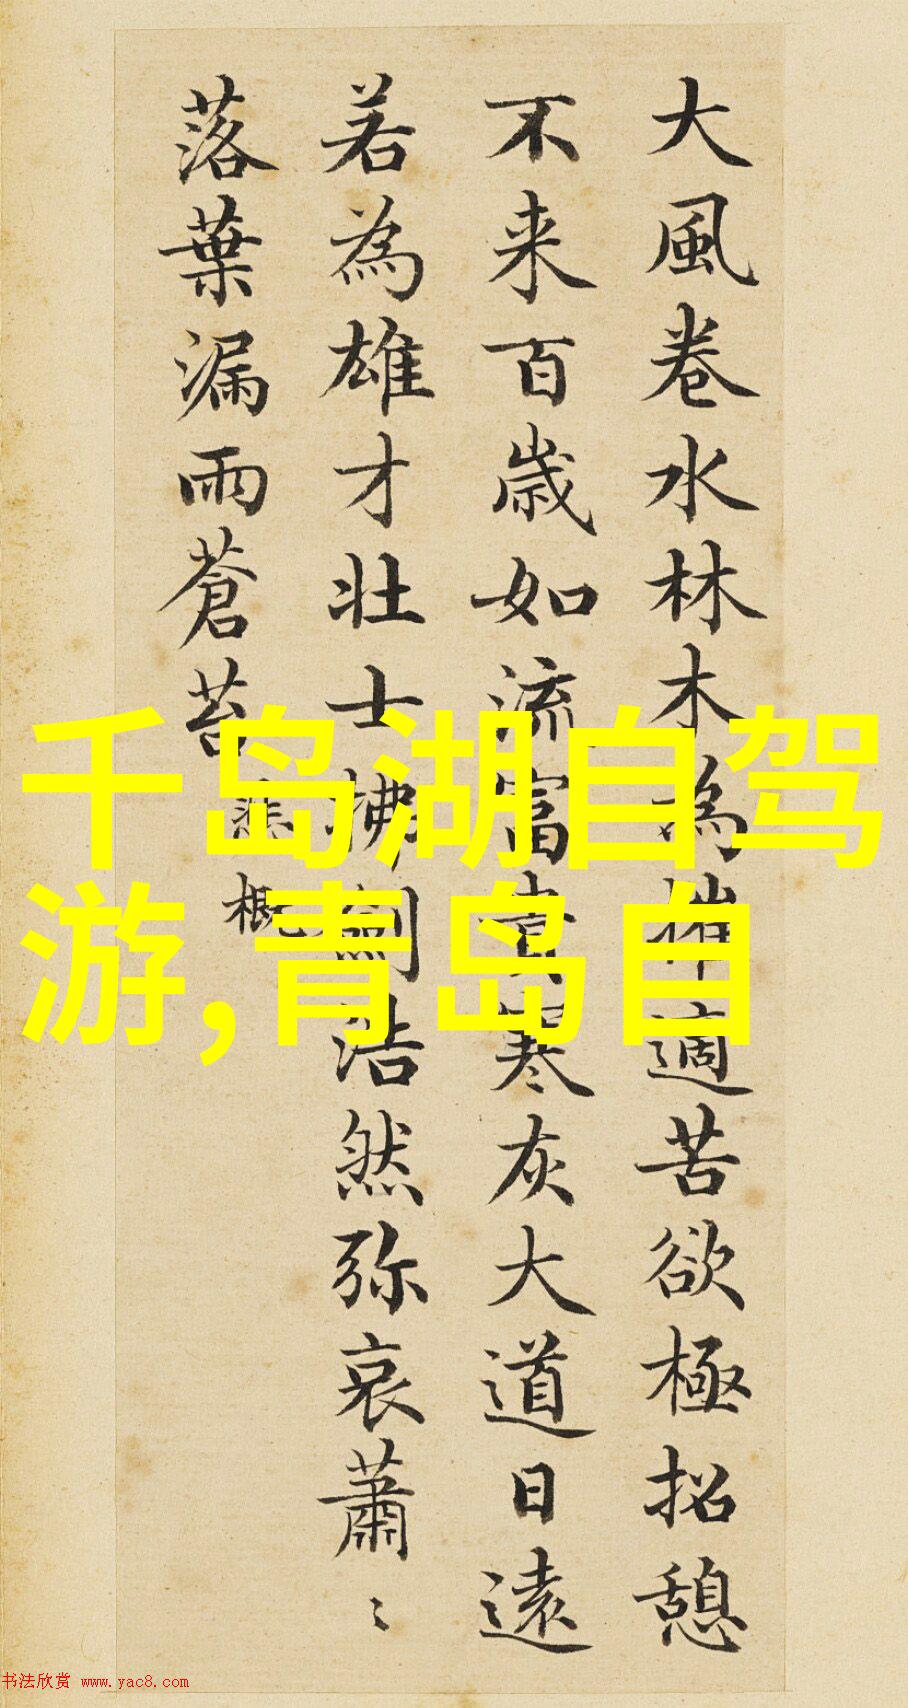 大風卷水林木為摧適苦欲極招憩
不来百歲如流富貴寒灰大道日遠
若為雄才壮士拂劍浩然弥哀蕭〻
落葉漏雨蒼苔 悲概
千岛湖自驾
游,青岛自
书法欣赏 www.yac8.com